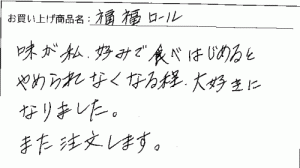 お買い上げ商品名：福福ロール
味が私好みで食べはじめると
やめられなくなる程、大好きに
なりました。
また注文します。